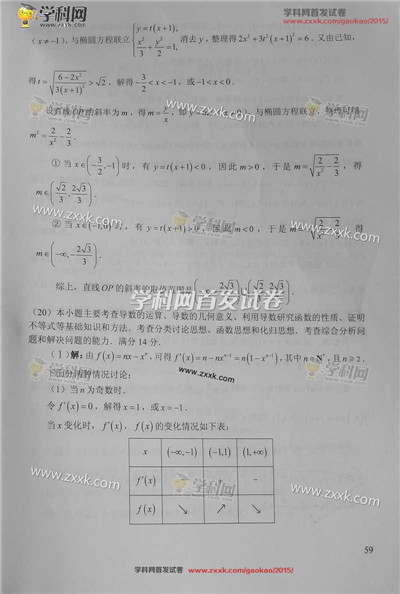 学科网 ZXXK.COM
学科网首发试卷
www.zxxk.com/gaokao/2015/
(x≠-1), 与椭圆方程联立 { y=t(x+1), x²/3+y²/2=1, 消去y, 整理得 2x²+3t²(x+1)²=6. 又由已知,
得 t=√((6-2x²)/(3(x+1)²))>√2, 解得 -3/2<x<-1, 或 -1<x<0.
设直线OP的斜率为m, 得 m=y/x, 即 与椭圆方程联立,
m²=2/x²-2/3.
www.zxxk.com
① 当 x∈(-3/2,-1) 时, 有 y=t(x+1)<0, 因此 m>0, 于是 m=√(2/x²-2/3), 得
m∈(√2/3, 2√3/3).
② 当 x∈(-1,0) 时, 有 y=t(x+1)>0, 因此 m<0, 于是 m=-√(2/x²-2/3), 得
m∈(-∞,-2√3/3).
综上, 直线OP的斜率的取值范围是 (-∞,-2√3/3)∪(√2/3, 2√3/3).
学科网首发试卷
(20) 本小题主要考查导数的运算、导数的几何意义、利用导数研究函数的性质、证明
不等式等基础知识和方法. 考查分类讨论思想、函数思想和化归思想. 考查综合分析问
题和解决问题的能力. 满分14分.
(Ⅰ) 解: 由 f(x)=nx-xⁿ, 可得 f'(x)=n-nxⁿ⁻¹=n(1-xⁿ⁻¹), 其中 n∈N*, 且 n≥2.
下面分两种情况讨论:
(1) 当n为奇数时.
令 f'(x)=0, 解得 x=1, 或 x=-1.
当x变化时, f'(x), f(x) 的变化情况如下表:
x (-∞,-1) (-1,1) (1,+∞)
f'(x) -
f(x) ↘ ↗ ↘
59
学科网首发试卷 www.zxxk.com/gaokao/2015/